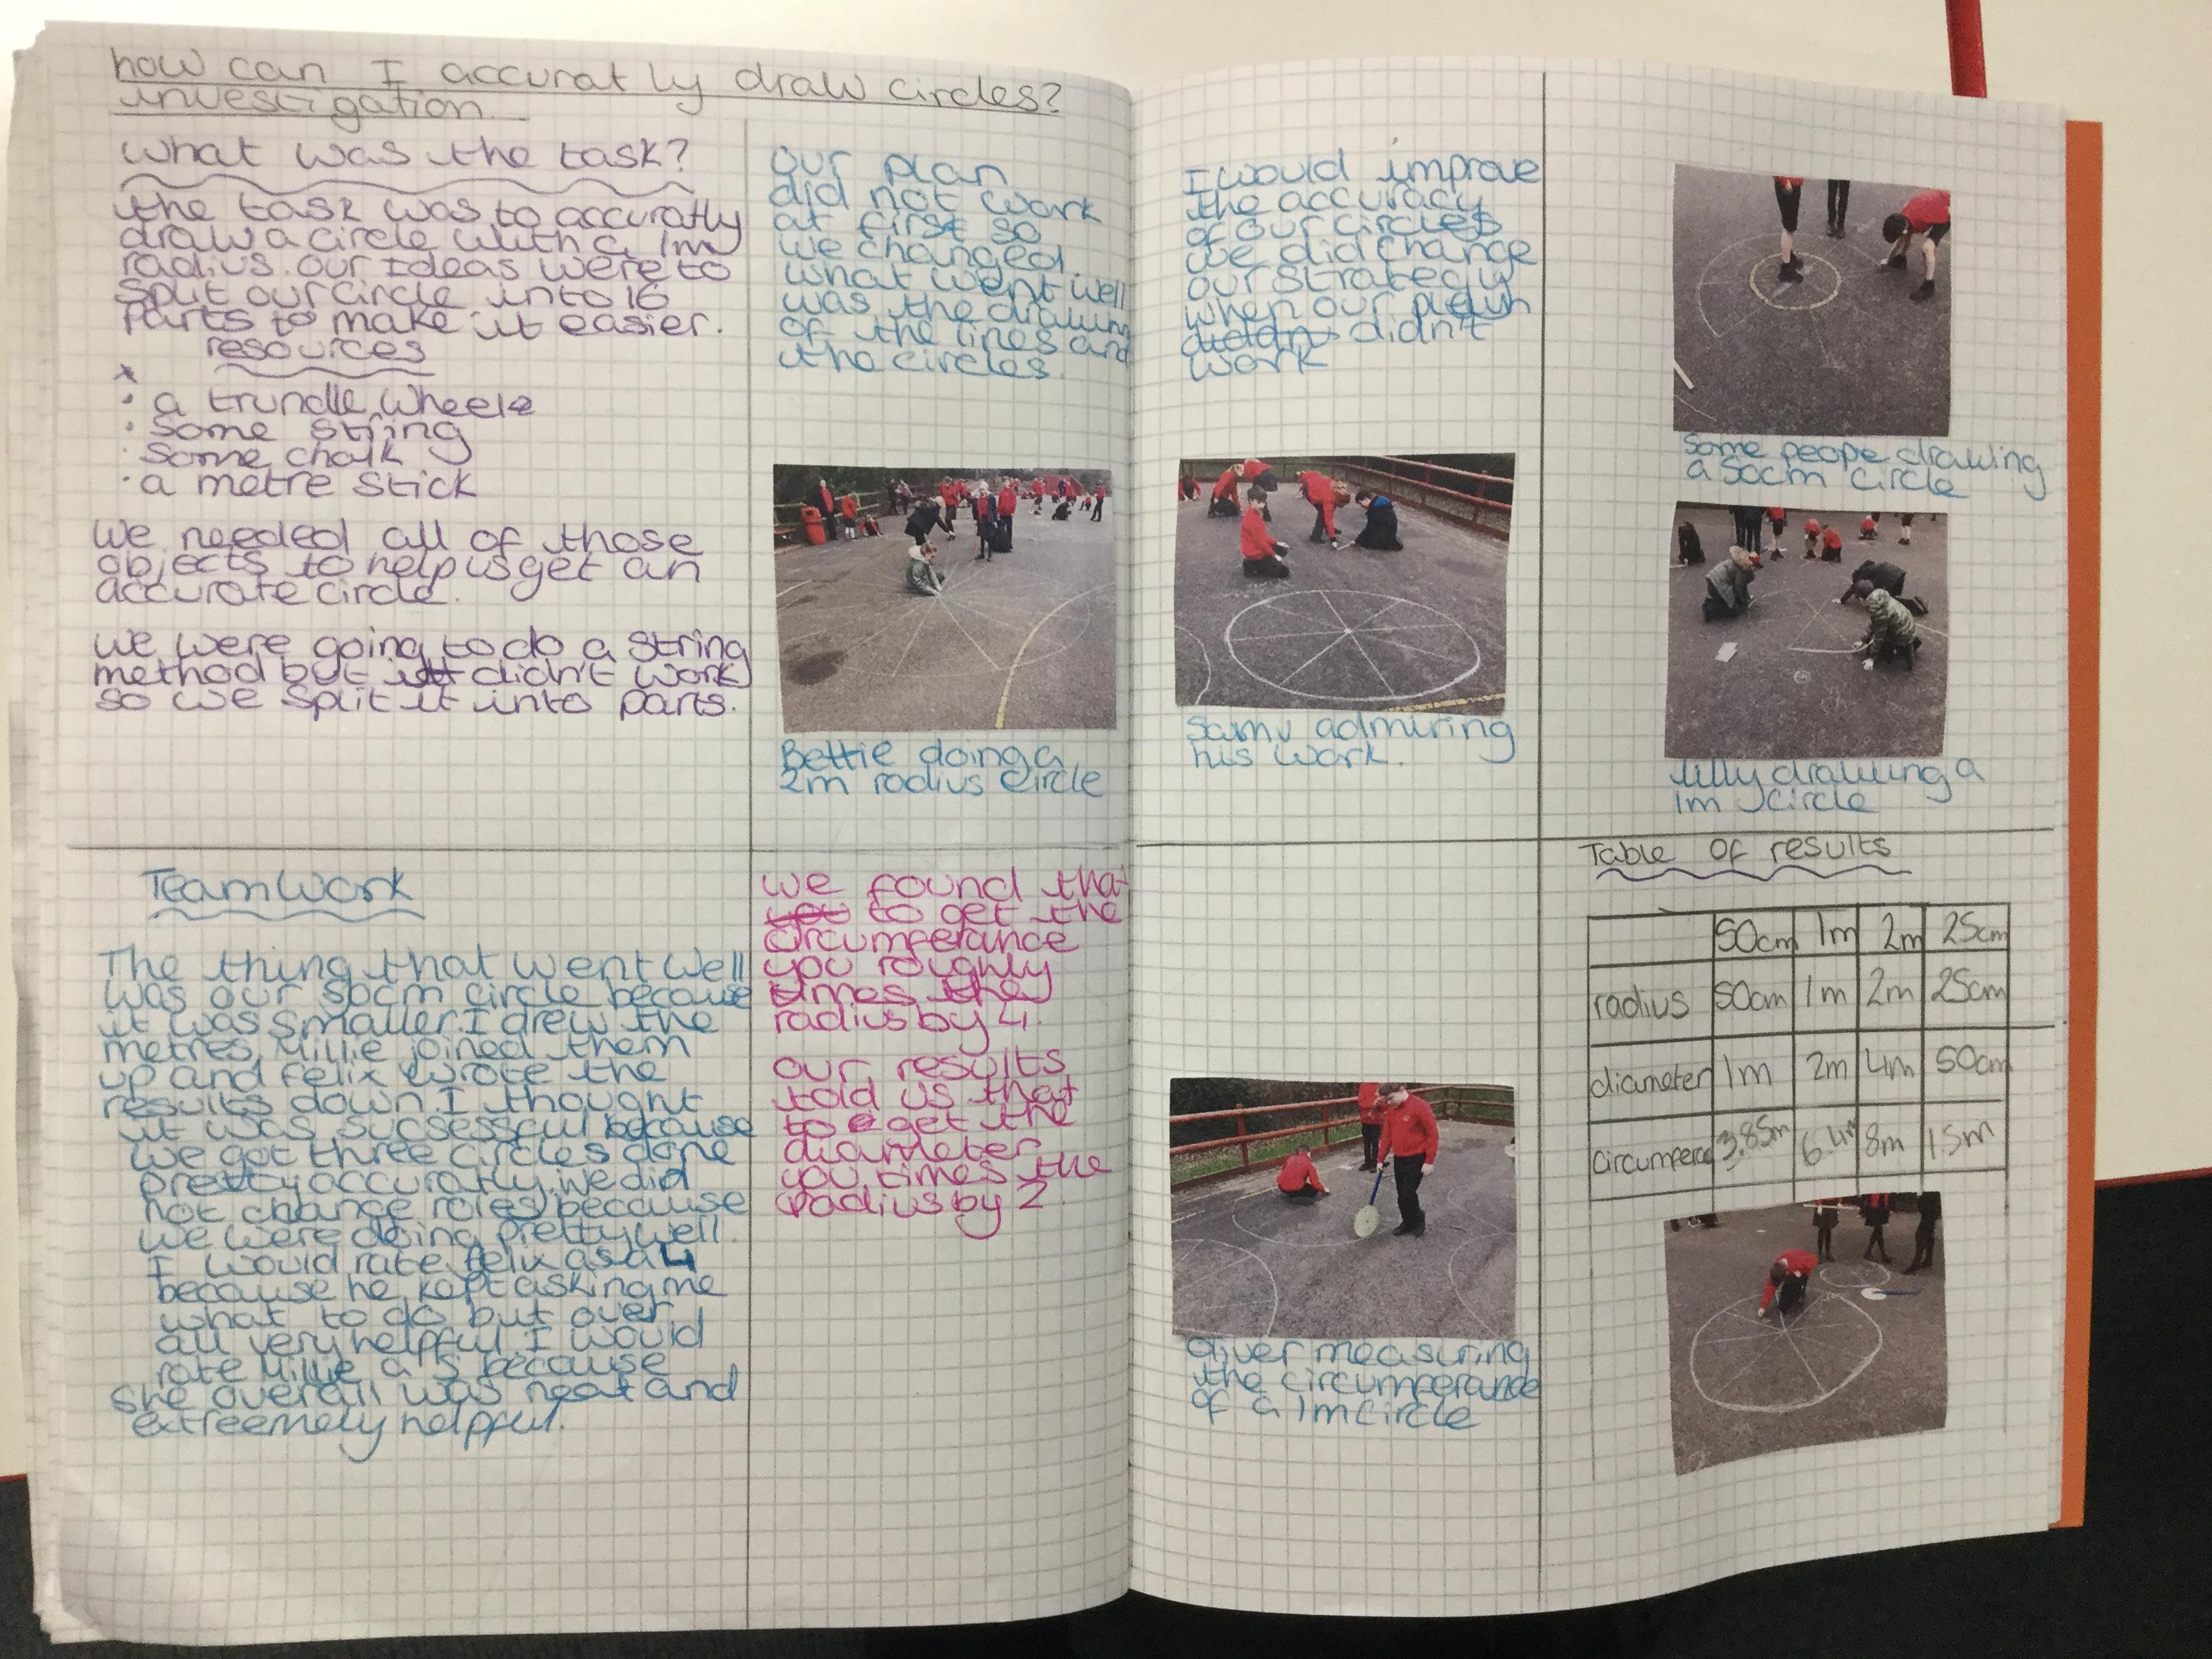 how can I accuratly draw circles?
investigation.
what was the task?
the task was to accuratly
draw a circle with a 1m
radius. our Ideas were to
split our circle into 16
parts to make it easier.
resources
· a trundle wheele
· some string
· some chalk
· a metre stick
we needed all of those
objects to help us get an
accurate circle.
we were going to do a string
method but it didn't work
so we split it into parts.
Teamwork
The thing that went well
was our 50cm circle because
it was smaller. I drew the
metres, Millie joined them
up and felix wrote the
results down. I thought
it was sucsessful because
we got three circles done
pretty accuratly. we did
not change roles because
we were doing pretty well.
I would rate felix as a 4
because he kept asking me
what to do but over
all very helpful. I would
rate Millie a 5 because
she overall was neat and
extreemely helpful.
our plan
did not work
at first so
we changed.
what went well
was the drawing
of the lines and
the circles.
Bettie doing a
2m radius circle
we found that
to get the
circumferance
you roughly
times the
radius by 4.
our results
told us that
to get the
diameter
you times the
radius by 2.
I would improve
the accuracy
of our circles
we did change
our strategy
when our plan
didn't
work
Samu admiring
his work.
Oliver measuring
the circumferance
of a 1m circle
Some peope drawing
a 50cm circle
Lilly drawing a
1m circle
Table of results
50cm 1m 2m 25cm
radius 50cm 1m 2m 25cm
diameter 1m 2m 4m 50cm
3.85m 8m 1.5m